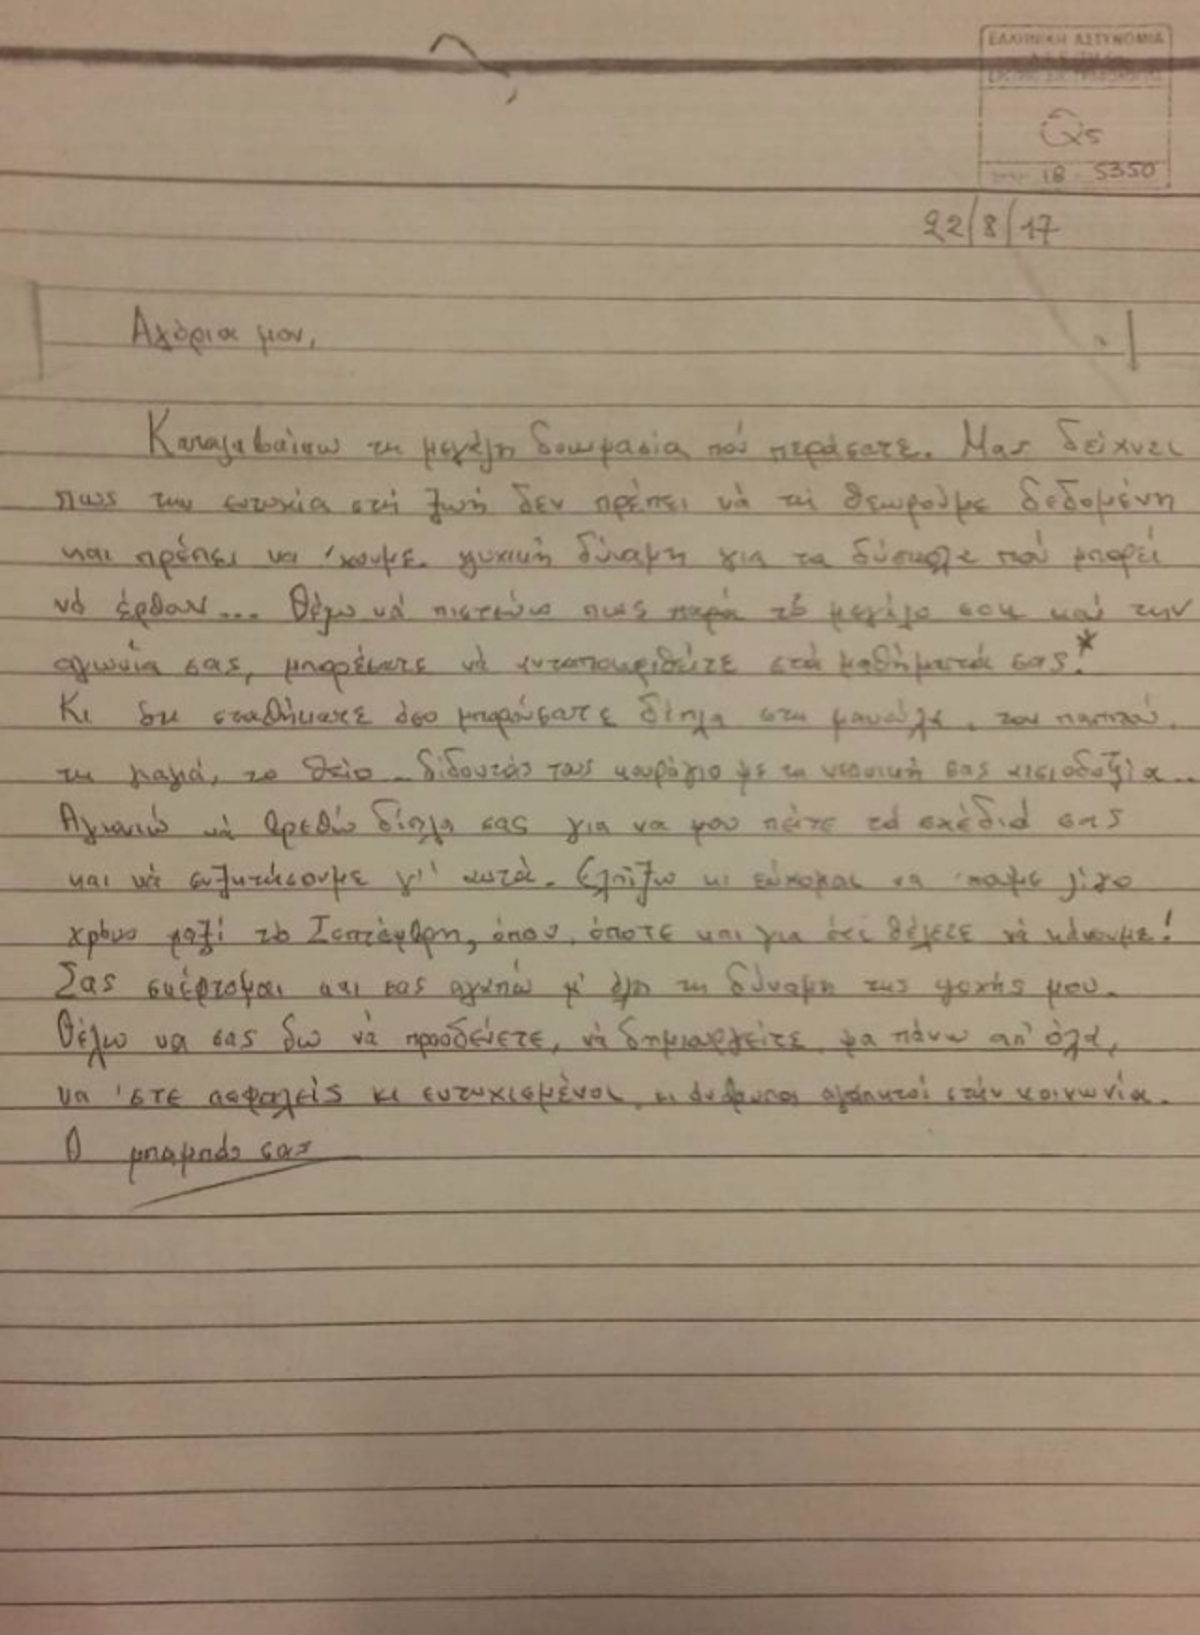 ΕΛΛΗΝΙΚΗ ΑΣΤΥΝΟΜΙΑ
Q5
18 5350
22/8/17
Αγόρια μου,
Καταλαβαίνω τη μεγάλη δοκιμασία πού περάσατε. Μας δείχνει
πως την ευτυχία στή ζωή δεν πρέπει νά τή θεωρούμε δεδομένη
και πρέπει να 'χουμε ψυχική δύναμη για τα δύσκολα πού μπορεί
νά έρθουν... Θέλω νά πιστεύω πως παρά τό μεγάλο σοκ καί την
αγωνία σας, μπορέσατε νά ανταποκριθείτε στά μαθήματά σας.*
Κι ότι σταθήκατε όσο μπορούσατε δίπλα στη μανούλα, του παππού,
τη γιαγιά, το θείο - δίδοντάς τους κουράγιο με τη νεανική σας αισιοδοξία...
Αγωνιώ νά βρεθώ δίπλα σας για να μου πείτε τά σχέδιά σας
και νά συζητήσουμε γι' αυτά. Ελπίζω κι εύχομαι να 'χουμε λίγο
χρόνο μαζί τό Σεπτέμβρη, όπου, όποτε και για ότι θέλετε νά κάνουμε!
Σας σκέφτομαι και σας αγαπώ μ' όλη τη δύναμη της ψυχής μου.
Θέλω να σας δω νά προοδεύετε, νά δημιουργείτε, μα πάνω απ' όλα,
να 'στε ασφαλείς κι ευτυχισμένοι, κι άνθρωποι αγαπητοί στήν κοινωνία.
Ο μπαμπάς σας